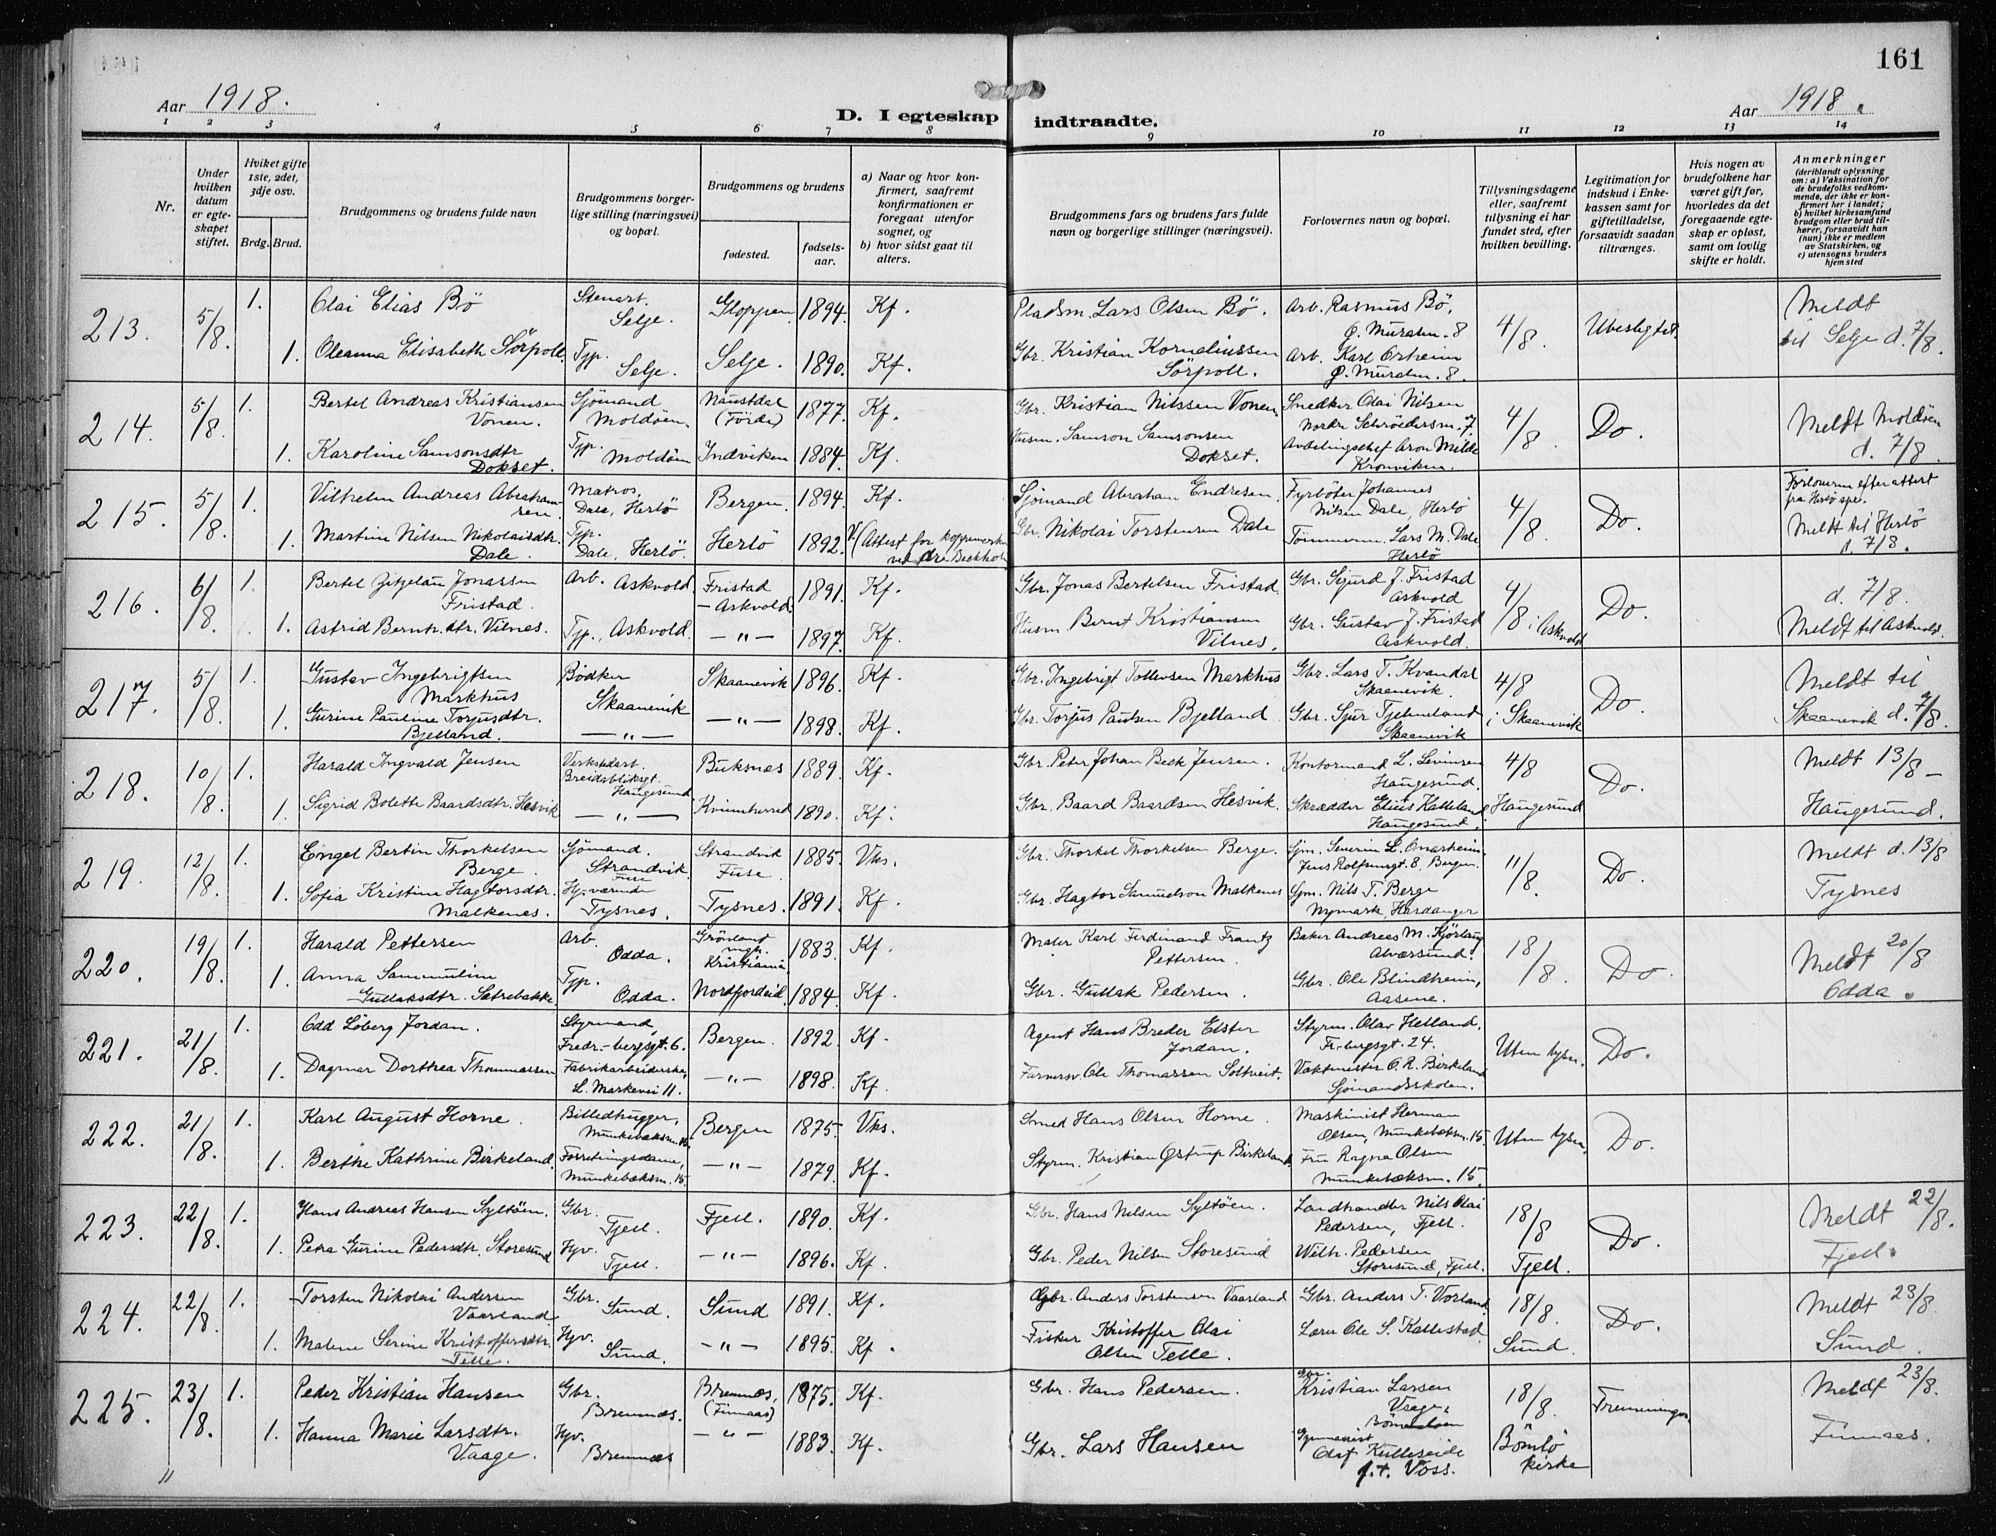 161
Aar 1918.
D. I egteskap indtraadte.
Aar 1918.
1 2 3 4 5 6 7 8 9 10 11 12 13 14
Nr.
Under hvilken datum er egteskapet stiftet.
Hviket gifte 1ste, 2det, 3dje osv.
Brdg. Brud.
Brudgommens og brudens fulde navn
Brudgommens borgerlige stilling (næringsvei) og bopæl.
Brudgommens og brudens
fødested.
fødselsaar.
a) Naar og hvor konfirmert, saafremt konfirmationen er foregaat utenfor sognet, og
b) hvor sidst gaat til alters.
Brudgommens fars og brudens fars fulde navn og borgerlige stillinger (næringsvei).
Forlovernes navn og bopæl.
Tillysningsdagene eller, saafremt tillysning ei har fundet sted, efter hvilken bevilling.
Legitimation for indskud i Enkekassen samt for giftetilladelse, forsaavidt saadan tiltrænges.
Hvis nogen av brudefolkene har været gift før, hvorledes da det foregaaende egteskap er opløst, samt om lovlig skifte er holdt.
Anmerkninger (deriblandt oplysning om: a) Vaksination for de brudefolks vedkommende, der ikke er konfirmert her i landet; b) hvilket kirkesamfund brudgom eller brud tilhører, forsaavidt han (hun) ikke er medlem av Statskirken, og c) utensogns bruders hjemsted
213. 5/8 1. Olai Elias Bö Stenarb. Selje. Gloppen. 1894. Kf. Pladsm. Lars Olsen Bö. Arb. Rasmus Bö, Ø. Muralm. 8 4/8 Ubeslegtet. Meldt til Selje d. 7/8.
1. Oleanna Elisabeth Sörpoll. Typ. Selje. Selje. 1890. Kf. Gbr. Kristian Korneliussen Sörpoll. Arb. Karl Orheim Ø. Muralm. 8.
214. 5/8 1. Bertel Andreas Kristiansen Vonen. Sjömand Moldöen. Naustdal (Förde) 1877. Kf. Gbr. Kristian Nilssen Vonen. Snedker Olai Nilsen Nordre Schröedersm. 7. 4/8. Do. Meldt Moldöen d. 7/8.
1. Karoline Samsonsdtr Dokset. Typ. Moldöen Indviken 1884. Kf. Husm. Samson Samsonsen Dokset. Avdelingschef Aron Milde Kronviken.
215. 5/8 1. Vilhelm Andreas Abrahamsen. Matros, Dale, Herlö Bergen. 1894. Kf. Sjömand Abraham Endresen. Fyrböter Johannes Nilsen Dale, Herlö 4/8. Do. Forloverne efter attest fra Herlö spr. Meldt til Herlö d. 7/8.
1. Martine Nilsen Nikolaisdtr. Dale. Typ. Dale, Herlö. Herlö 1892. Gbr. Nikolai Torstensen Dale Tömmerm. Lars M. Dale Herlö
216. 6/8. 1. Bertel Zitzelau Jonassen Fristad. Arb. Askvold. Fristad – Askvold. 1891. Kf. Gbr. Jonas Bertelsen Fristad. Gbr. Sigurd J. Fristad Askvold 4/8 i Askvold Do. d. 7/8. Meldt til Askvold.
1. Astrid Berntsdtr. Vilnes. Typ., Askvold. – " – 1897. Kf. Husm Bernt Kristiansen Vilnes. Gbr. Gustav J. Fristad Askvold.
217. 5/8 1. Gustav Ingebrigtsen Markhus Bødker Skaanevik Skaanevik 1896. Kf. Gbr. Ingebrigt Tollevsen Markhus Gbr. Lars T. Kvandal Skaanevik. 4/8 i Skaanevik Do. Meldt til Skaanevik d. 7/8.
1. Gurine Pauline Torjusdtr. Bjelland. – " – – " – 1898. Kf. Gbr. Torjus Paulsen Bjelland Gbr. Sjur Tjelmeland Skaanevik
218. 10/8. 1. Harald Ingvald Jensen Verkstedarb. Breidabliksgt. Haugesund Buksnes 1889. Kf. Gbr. Peter Johan Beck Jensen. Kontormand L. Levinsen Haugesund. 4/8 Haugesund Do. Meldt 13/8 – Haugesund.
1. Sigrid Bolette Baardsdtr. Hesvik – " – Kvinnherred 1890. Kf. Gbr. Baard Baardsen Hesvik. Skrædder Elias Kalleland Haugesund.
219. 12/8. 1. Engel Bertin Thorkelsen Berge. Sjömand. Strandvik Fuse Strandvik Fuse. 1885. Vks. Gbr. Thorkel Thorkelsen Berge. Sjm. Severin L. Jens Rolfsensgt. 8, Bergen. 11/8. Do. Meldt d. 13/8 Tysnes
1. Sofia Kristine Hagtorsdtr. Malkenes. Hj.værende Tysnes. Tysnes. 1891. Kf. Gbr. Hagtor Samuelson Malkenes Sjm. Nils T. Berge Nymark, Hardanger
220. 19/8. 1. Harald Pettersen Arb. Odda. Grönland mgh Kristiania 1883. Kf. Maler Karl Ferdinand Frantz Pettersen. Baker Andreas M. Alversund. 18/8. Do. Meldt 20/8 Odda.
1. Anna Sammuline Gullaksdtr. Sætrebakke Typ. Odda. Nordfjordeid. 1884. Kf. Gbr. Gullak Pedersen. Gbr. Ole Blindheim, Aasene.
221. 21/8. 1. Odd Löberg Jordan. Styrmand, Fredr.-bergsgt. 6. Bergen. 1892. Kf. Agent Hans Breder Elster Jordan. Styrm. Olav Helland, Fr.bergsgt. 24. Uten lysn. Do.
1. Dagmar Dorthea Thommassen Fabrikarbeiderske, L. Markevei 11. – " – 1898. Kf. Farversv. Ole Thomassen Soltveit. Vaktmester O. R. Birkeland Sjömandsskolen.
222. 21/8. 1. Karl August Horne. Billedhugger, Munkebæksm. 15. Bergen 1875. Vks. Smed Hans Olsen Horne. Maskinist Herman Olsen, Munkebæksm. 15. Uten lysn. Do.
1. Berthe Kathrine Birkeland. Forretningsdame, Munkebæksm. 15 – " – 1879. Kf. Styrm. Kristian Østrup Birkeland. Fru Ragna Olsen Munkebæksm. 15.
223. 22/8. 1. Hans Andreas Hansen Syltöen. Gbr. Fjell. Fjell. 1890. Kf. Gbr. Hans Nilsen Syltöen. Landhandler Nils Olai Pedersen, Fjell. 18/8 Fjell. Do. Meldt 22/8. Fjell.
1. Petra Gurine Pedersdtr. Storesund Hjv. Fjell. – " – 1896. Kf. Gbr. Peder Nilsen Storesund Wilh. Pedersen Storesund, Fjell.
224. 22/8. 1. Torsten Nikolai Andersen Vaarland. Gbr. Sund. Sund 1891. Kf. Gbr. Anders Torstensen Vaarland Gbr. Anders T. Vorland 18/8. Sund. Do. Meldt 23/8. Sund.
1. Malene Serine Kristoffersdtr. Telle. Hjv. Sund. – " – 1895. Kf. Fisker Kristoffer Olai Olsen Telle. Lærer Ole S. Kallestad.
225. 23/8. 1. Peder Kristian Hansen Gbr. Bremnæs. Bremnæs, (Finnaas) 1875. Kf. Gbr. Hans Pedersen. Gbr. Kristian Larsen Vaage, 18/8. Bömlö kirke Fremmninger. Meldt 23/8. Finnaas.
1. Hanna Marie Larsdtr. Vaage. Hjv. Bremnæs – " – 1883. Kf. Gbr. Lars Hansen Gymnasist Olaf Kulleseide f.t. Voss.